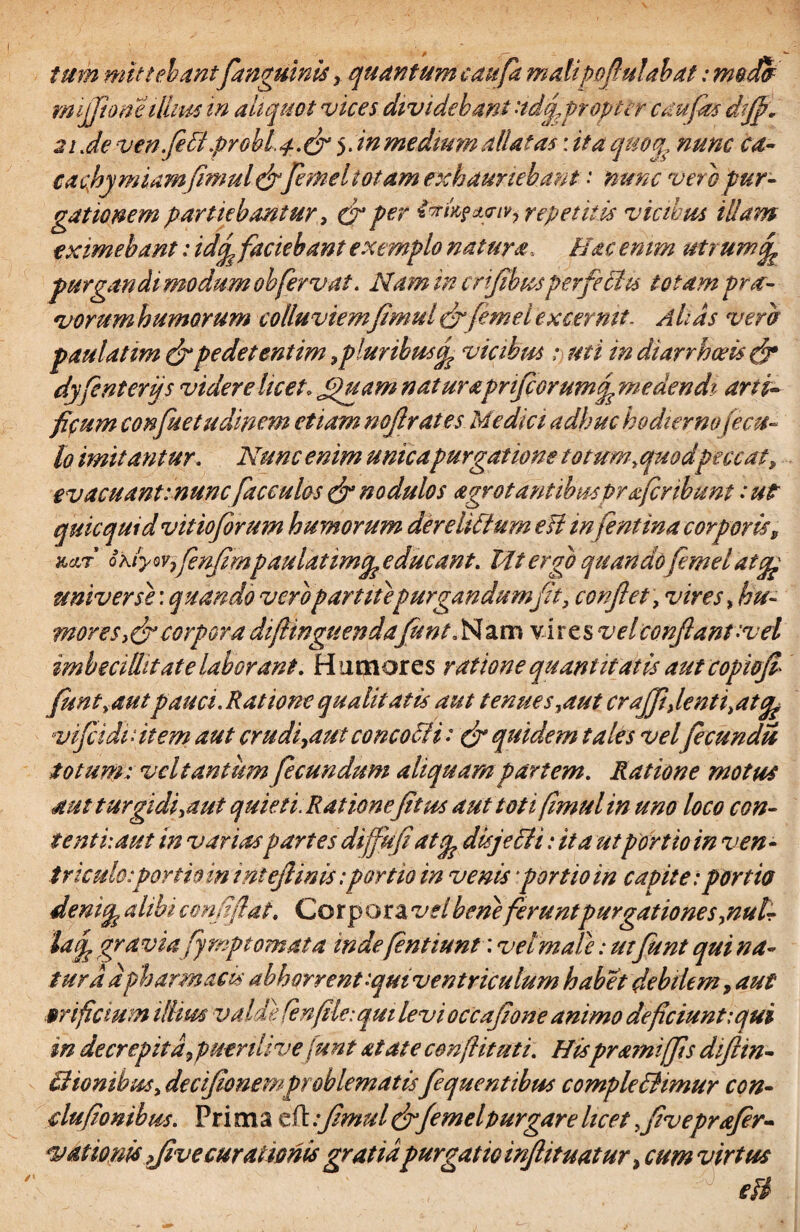 tum mittebant sanguinis, quantum causa mali postulabat: modò
missione illius in aliquot vices dividebant: idq; propter causas diss.
21. de ven. sect. probl. 4. & 5. in medium allatas: ita quoq; nunc ca-
cachymiam simul & semel totam exhauriebant: nunc vero pur-
gationem partiebantur, & per ἐπίκρασιν, repetitis vicibus illam
eximebant: idq; faciebant exemplo naturæ. Hæc enim utrumq;
purgandi modum observat. Nam in crisibus perfectis totam pra-
vorum humorum colluviem simul & semel excernit. Aliàs verò
paulatim & pedetentim, pluribusq; vicibus: uti in diarrhœis &
dysenterijs videre licet. Quam naturæ priscorumq; medendi arti-
ficum consuetudinem etiam nostrates Medici adhuc hodierno secu-
lo imitantur. Nunc enim unica purgatione totum, quod peccat,
evacuant: nunc sacculos & nodulos ægrotantibus præscribunt: ut
quicquid vitiosorum humorum derelictum est in sentina corporis,
κατ' ὀλίγον, sensim paulatimq; educant. Ut ergò quando semel atq;
universè: quando verò partitè purgandum sit, constet, vires, hu-
mores, & corpora distinguenda sunt. Nam vires vel constant: vel
imbecillitate laborant. Humores ratione quantitatis aut copiosi
sunt, aut pauci. Ratione qualitatis aut tenues, aut crassi, lenti, atq;
viscidi: item aut crudi, aut concocti: & quidem tales vel secundū
totum: vel tantùm secundum aliquam partem. Ratione motus
aut turgidi, aut quieti. Ratione situs aut toti simul in uno loco con-
tenti: aut in varias partes diffusi atq; disjecti: ita ut portio in ven-
triculo: portio in intestinis: portio in venis: portio in capite: portio
deniq; alibi consistat. Corpora vel benè ferunt purgationes, nul-
laq; gravia symptomata inde sentiunt: vel malè: ut sunt qui na-
turâ à pharmacis abhorrent: qui ventriculum habēt debilem, aut
orificium illius valdè sensile: qui levi occasione animo deficiunt: qui
in decrepitâ, puerilive sunt ætate constituti. His præmissis distin-
ctionibus, decisionem problematis sequentibus complectimur con-
clusionibus. Prima est: simul & semel purgare licet, sive præser-
vationis, sive curationis gratiâ purgatio instituatur, cum virtus
est